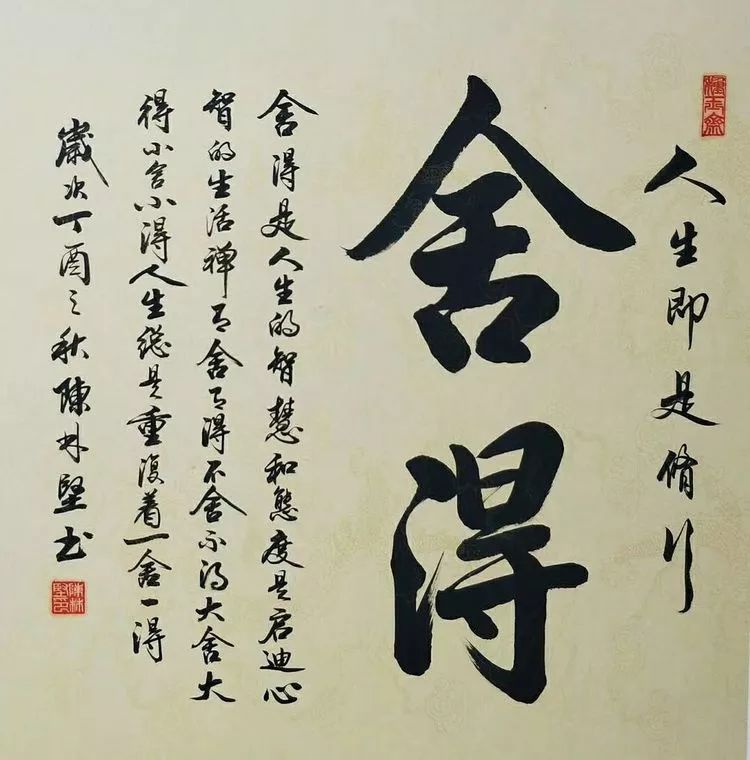 人生即是脩行
舍得
舍得是人生的智慧和態度是启迪心
智的生活禅有舍有得不舍不得大舍大
得小舍小得人生總是重復着一舍一得
歲次丁酉之秋陳林堅书
陳林堅印